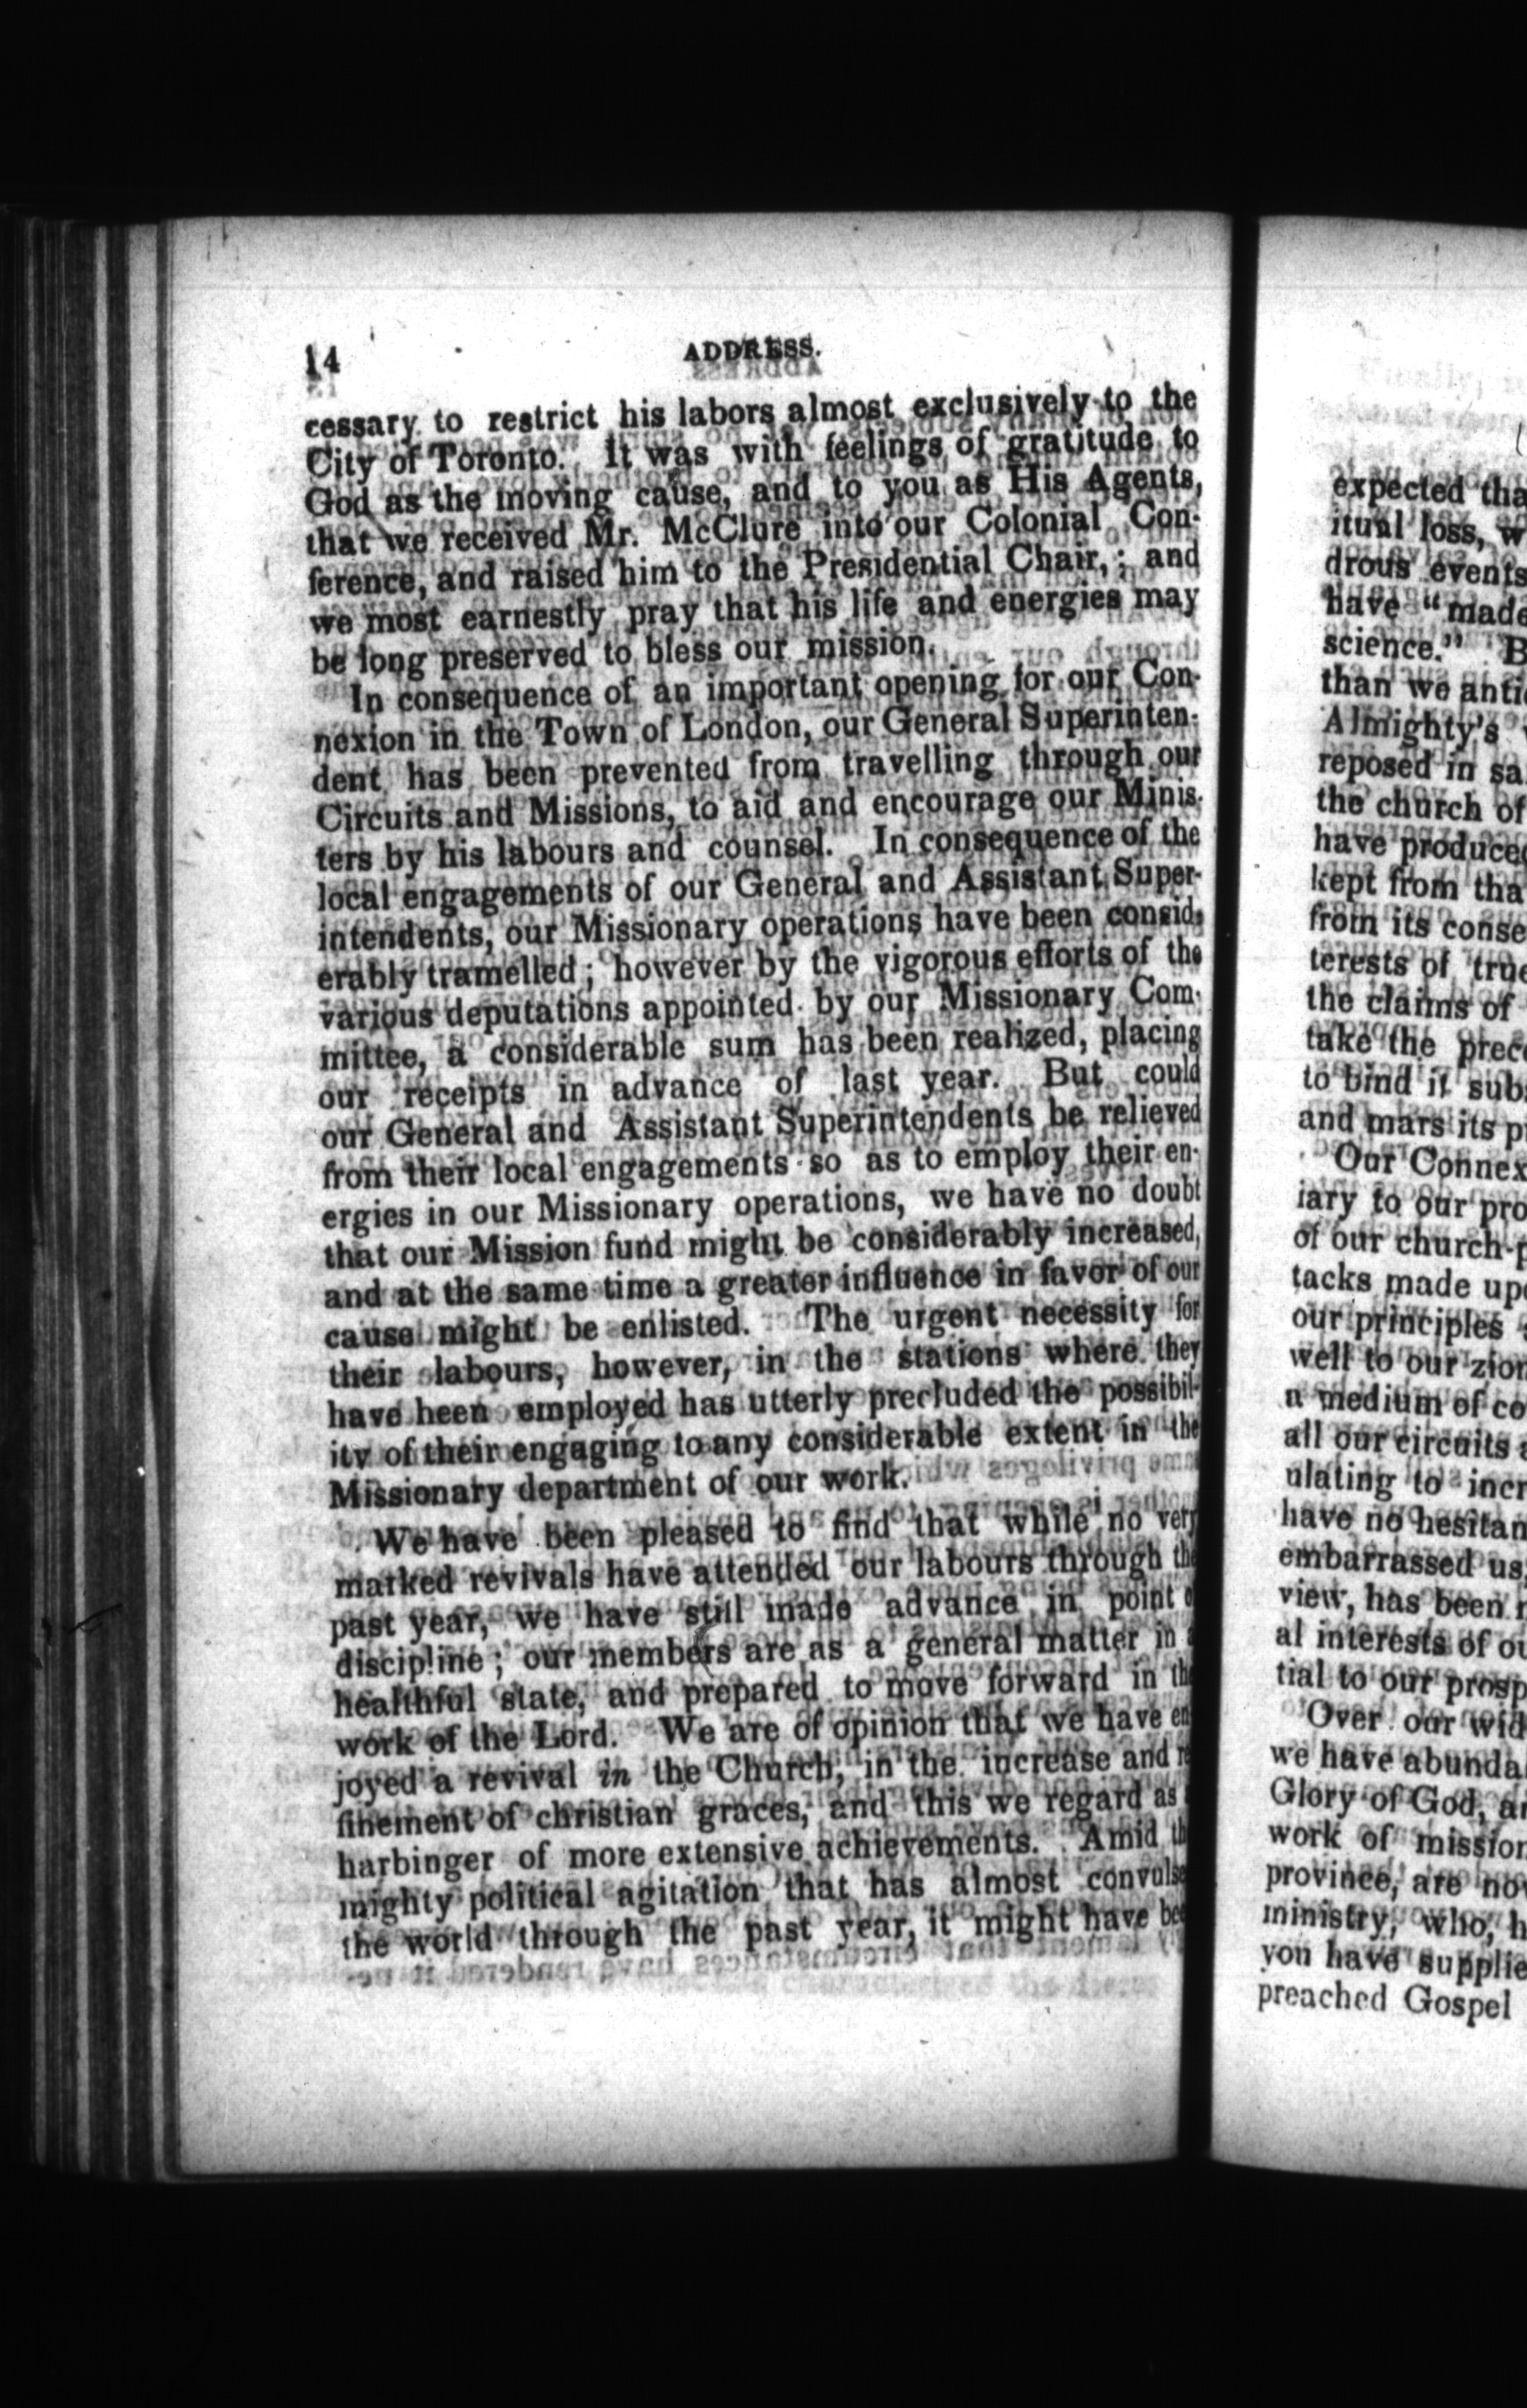 14
ADDRESS.
cessary to restrict his labors almost exclusively to the
City of Toronto. It was with feelings of gratitude to
God as the moving cause, and to you as His Agents,
that we received Mr. McClure into our Colonial Con-
ference, and raised him to the Presidential Chair,; and
we most earnestly pray that his life and energies may
be long preserved to bless our mission.
In consequence of an important opening for our Con-
nexion in the Town of London, our General Superinten-
dent has been prevented from travelling through our
Circuits and Missions, to aid and encourage our Minis-
ters by his labours and counsel. In consequence of the
local engagements of our General and Assistant Super-
intendents, our Missionary operations have been consid-
erably tramelled; however by the vigorous efforts of the
various deputations appointed by our Missionary Com-
mittee, a considerable sum has been realized, placing
our receipts in advance of last year. But could
our General and Assistant Superintendents be relieved
from their local engagements so as to employ their en-
ergies in our Missionary operations, we have no doubt
that our Mission fund might be considerably increased,
and at the same time a greater influence in favor of our
cause might be enlisted. The urgent necessity for
their labours, however, in the stations where they
have been employed has utterly precluded the possibil-
ity of their engaging to any considerable extent in the
Missionary department of our work.
We have been pleased to find that while no very
marked revivals have attended our labours through the
past year, we have still made advance in point o
discipline; our members are as a general matter in a
healthful state, and prepared to move forward in the
work of the Lord. We are of opinion that we have en
joyed a revival in the Church, in the increase and re
finement of christian graces, and this we regard as
harbinger of more extensive achievements. Amid th
mighty political agitation that has almost convulse
the world through the past year, it might have bee
expected tha
itual loss, w
drous events
have "made
science." B
than we antic
Almighty's
reposed in sa
the church of
have produced
kept from tha
from its conse
terests of true
the claims of
take the prece
to bind it subs
and mars its p
Our Connex
iary to our pro
of our church-p
tacks made upo
our principles
well to our zion
a medium of co
all our circuits a
ulating to incr
have no hesitan
embarrassed us,
view, has been n
al interests of ou
tial to our prosp
Over our wid
we have abundan
Glory of God, an
work of mission
province, are now
ministry, who, h
you have supplie
preached Gospel